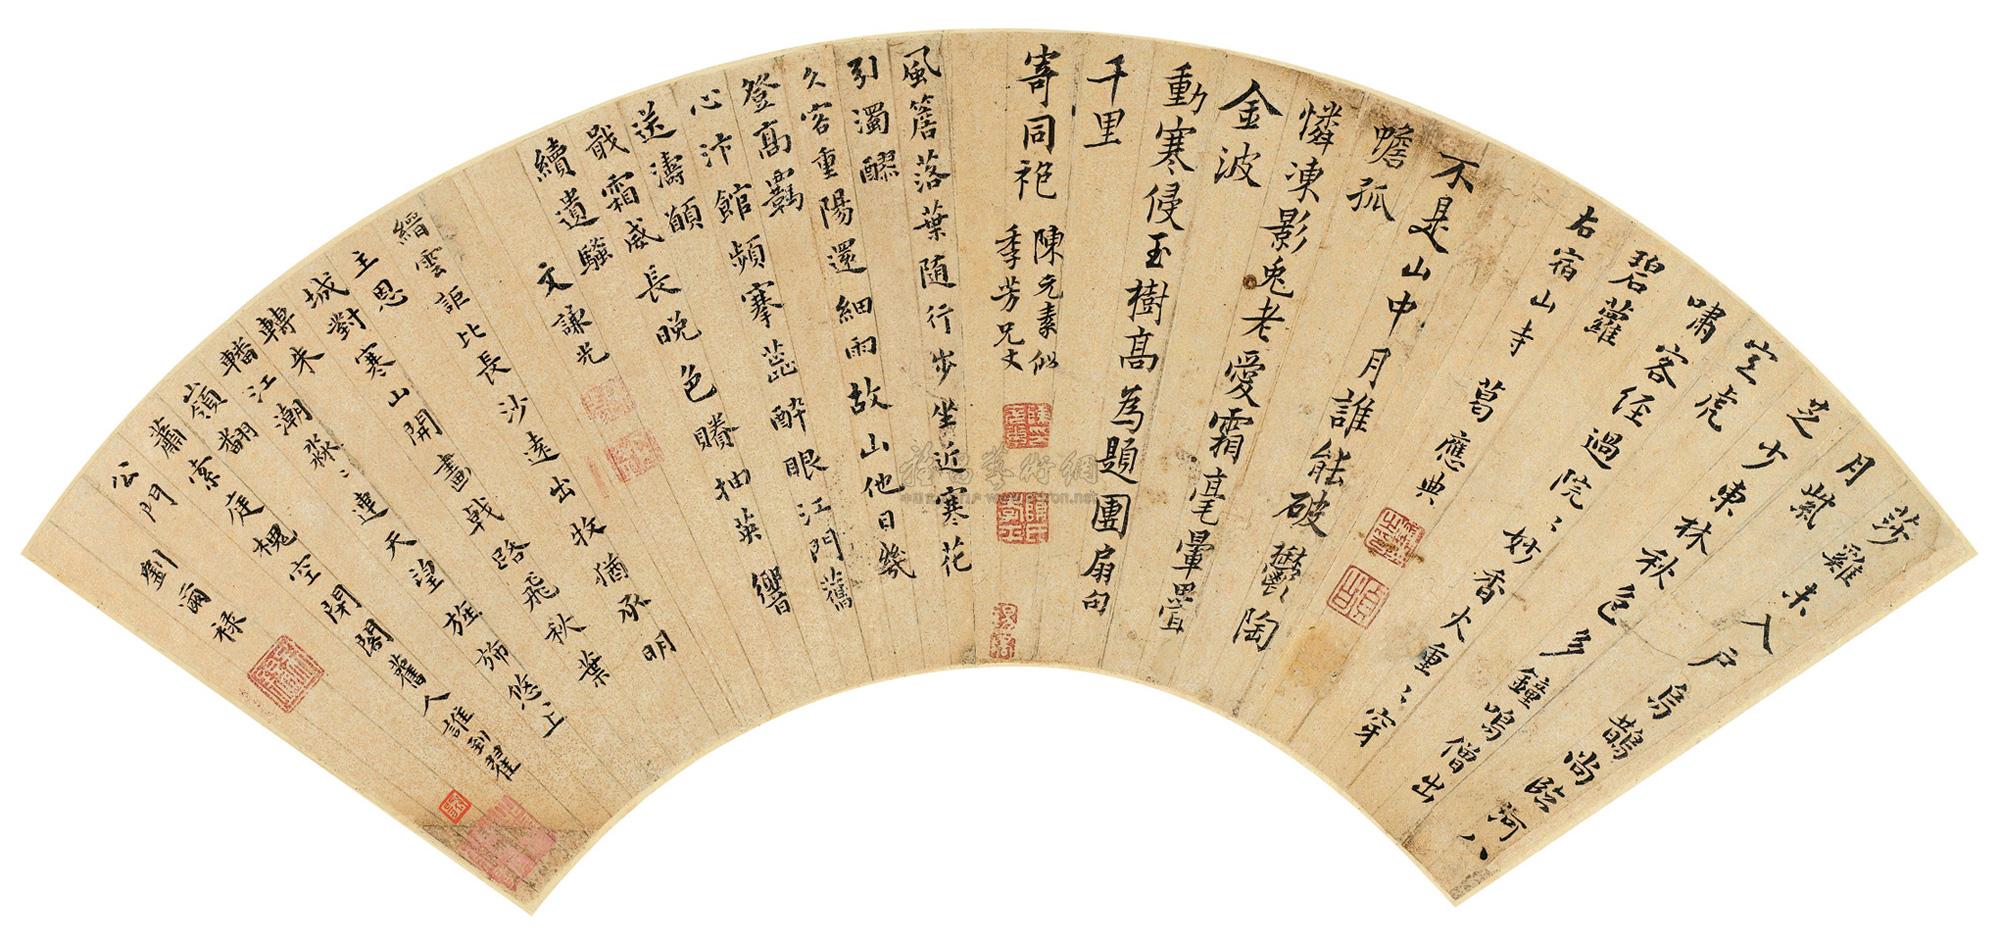 莎雞未入戶烏鵲尚臨河八
月紫
芝少東林秋色多鐘鳴僧出
定虎
嘯客徑過院〻妙香火重〻穿
碧蘿
右宿山寺 葛應典
不是山中月誰能破鬱陶
蟾孤
憐凍影兔老愛霜毫暈疊
金波
動寒侵玉樹高為題團扇句
千里
寄同袍 陳元素似
季芳兄丈
風簷落葉隨行步坐近寒花
引濁醪
久客重陽還細雨故山他日幾
登高
羈心汴館頻搴蕊醉眼江門舊
送濤
顧長晚色賸抽英響
戰霜威
續遺騷 文謙光
縉雲詎比長沙遠出牧猶承明
主恩
對寒山開畫戟路飛秋葉
城朱
轉江潮淼〻連天望旌旆悠上
轓翻
嶺蕭索庭槐空閉閣舊人誰到翟
公門 劉爾祿